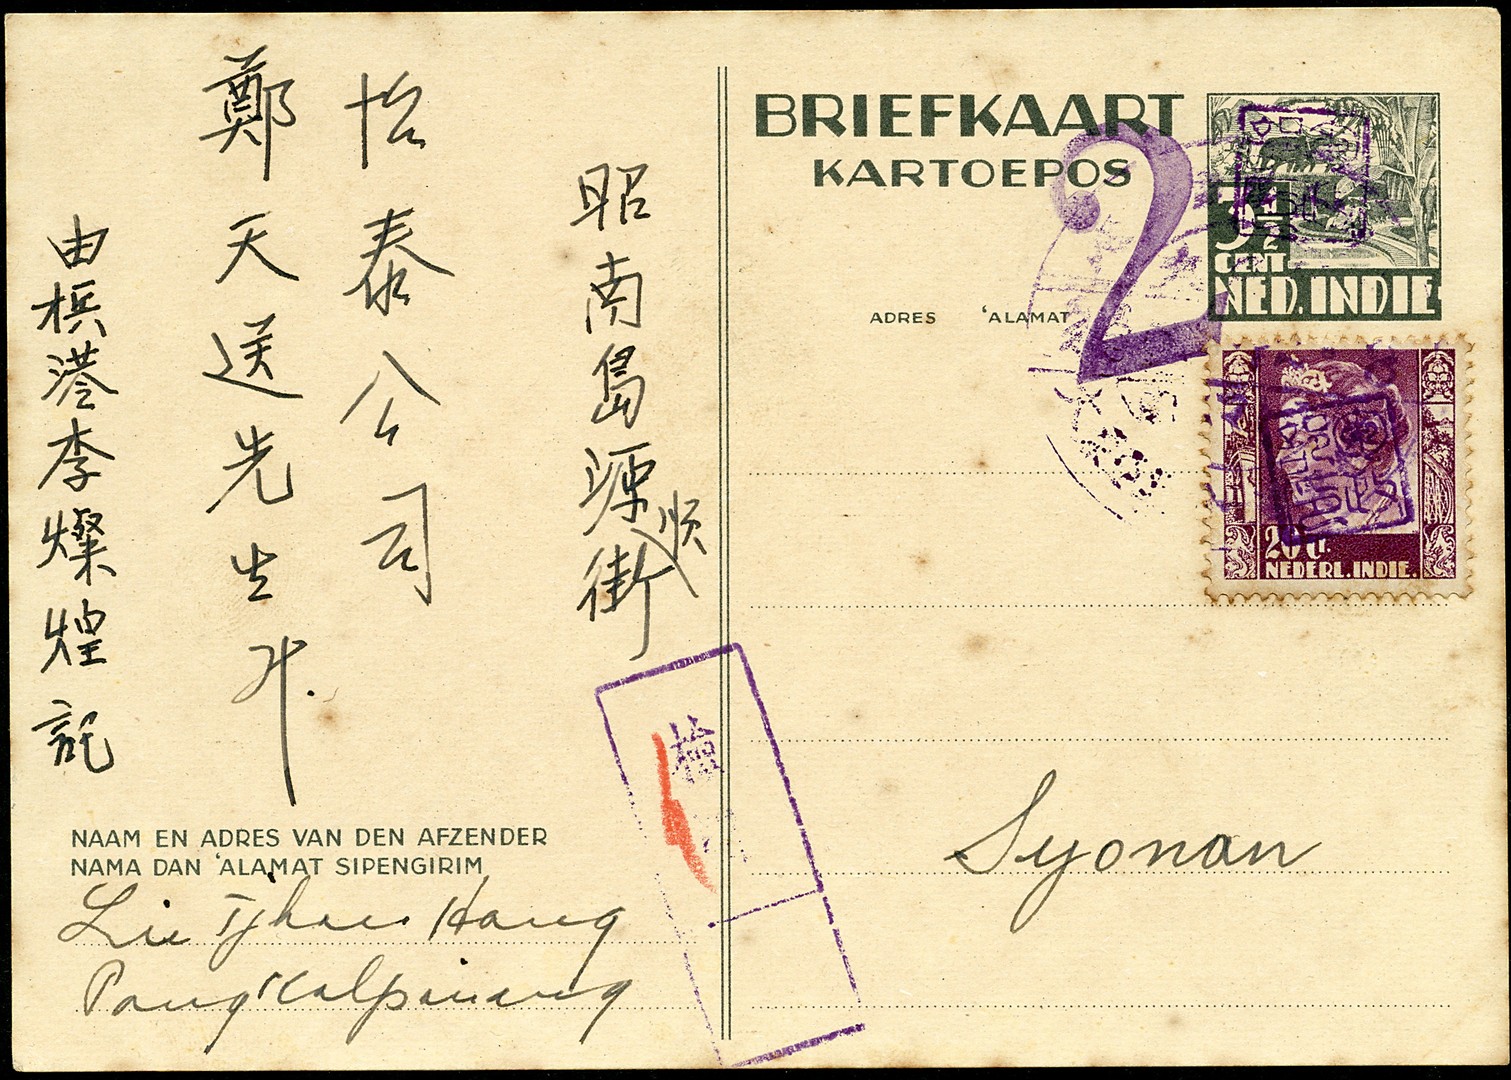 昭南島源順街
怡泰公司
鄭天送先生
由梹港李燦煌記
NAAM EN ADRES VAN DEN AFZENDER
NAMA DAN 'ALAMAT SIPENGIRIM
Lie Tjhan Hong
Pangkalpinang
BRIEFKAART
KARTOEPOS
2
ADRES 'ALAMAT
3½
CENT
NED. INDIE
20 CT.
NEDERL. INDIE.
Syonan